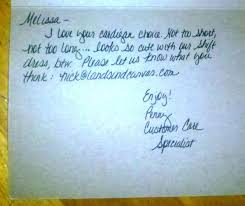 Melissa -
I love your cardigan choice. Not too short,
not too long... looks so cute with our shift
dress, btw. Please let us know what you
think: nick@landsandcanvas.com
Enjoy!
Penny
Customer Care
Specialist